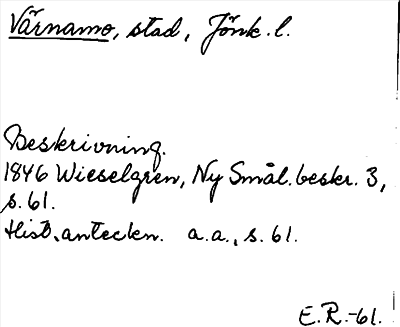 Värnamo, stad, Jönk. l.
Beskrivning.
1846 Wieselgren, Ny Smål. beskr. 3,
s. 61.
Hist. anteckn. a.a., s. 61.
E.R.-61.